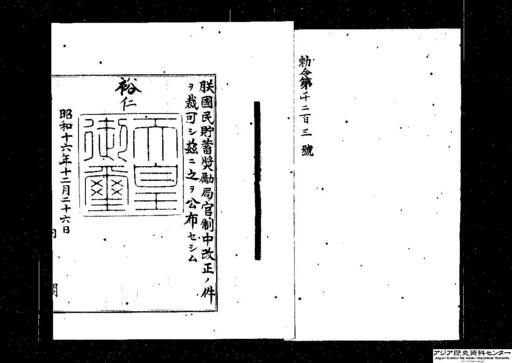 勅令第千二百三號
朕國民貯蓄奬勵局官制中改正ノ件
ヲ裁可シ茲ニ之ヲ公布セシム
裕仁
天皇
御璽
昭和十六年十二月二十六日
内閣
アジア歴史資料センター
Japan Center for Asian Historical Records